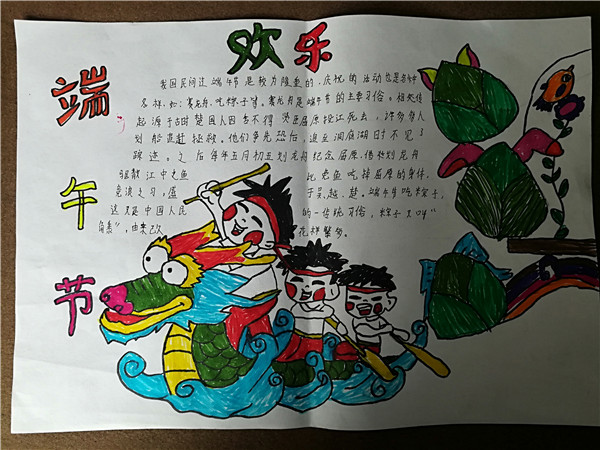 欢乐
端午节
我国民间过端午节是较为隆重的,庆祝的活动也是各种
各样,如:赛龙舟,吃粽子等。赛龙舟是端午节的主要习俗。相传
起源于古时楚国人因舍不得贤臣屈原投江死去,许多人
划船追赶拯救。他们争先恐后,追至洞庭湖时不见了
踪迹。之后每年五月初五划龙舟纪念屈原,借划龙舟
驱散江中之鱼
比免鱼吃掉屈原的身体,
竞渡之习,盛
于吴、越、楚。端午节吃粽子,
这是中国人民
的一传统习俗,粽子又叫“
角黍”,由来已
花样繁多。